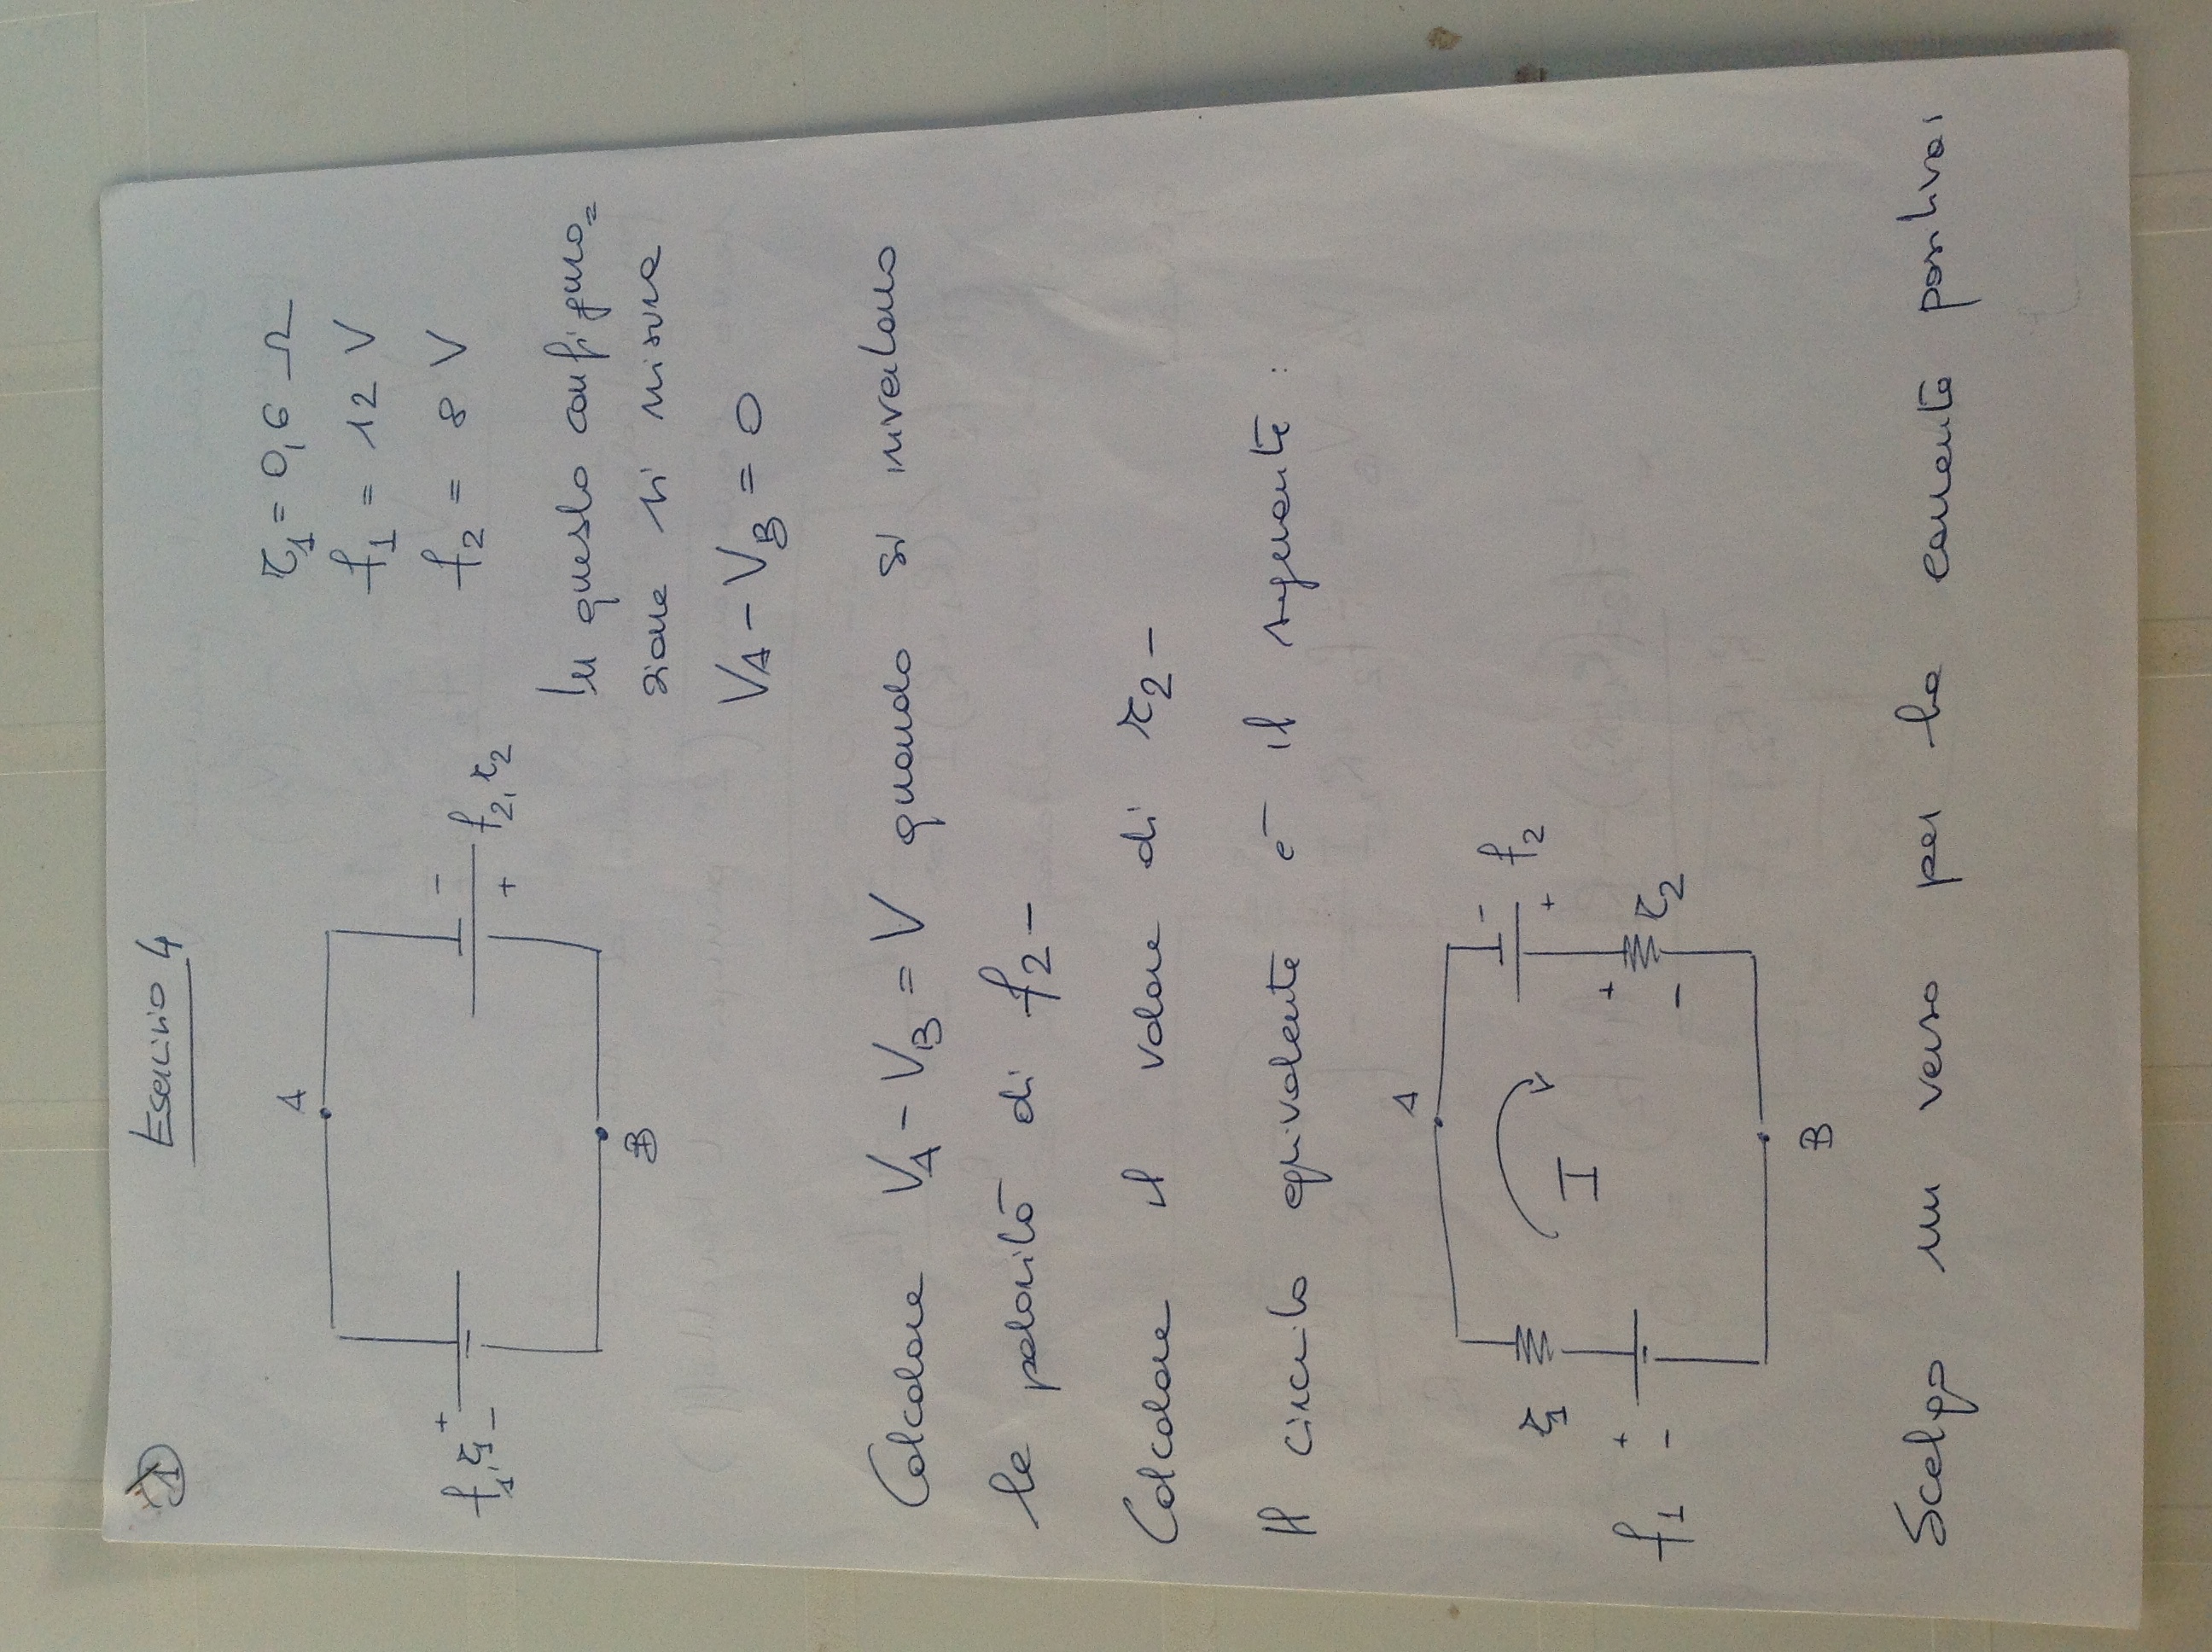 1
Esercizio 4
A
r1 = 0,6 Ω
f1 = 12 V
f2 = 8 V
+
-
f1, r1
-
+
f2, r2
B
In questa configura=
zione si misura
VA - VB = 0
Calcolare VA - VB = V quando si invertono
le polarità di f2 -
Calcolare il valore di r2 -
Il circuito equivalente è il seguente :
A
r1
I
-
f2
+
f1
+
-
+
r2
-
B
Scelgo un verso per la corrente positiva,